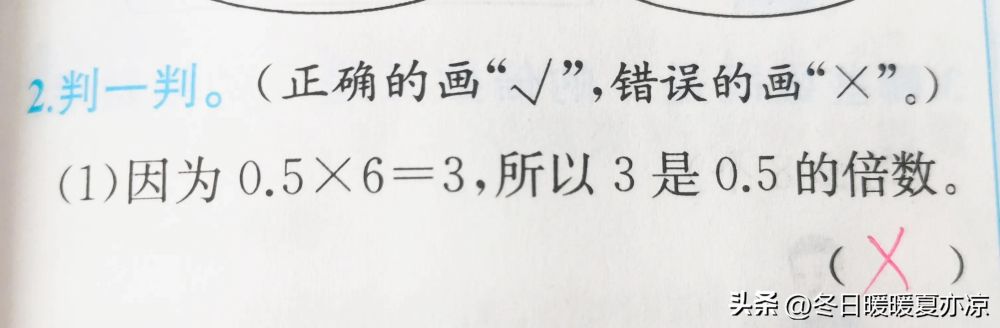 2.判一判。(正确的画“√”,错误的画“×”。)
(1)因为 0.5×6=3,所以 3 是 0.5 的倍数。
( X )
头条 @冬日暖暖夏亦凉